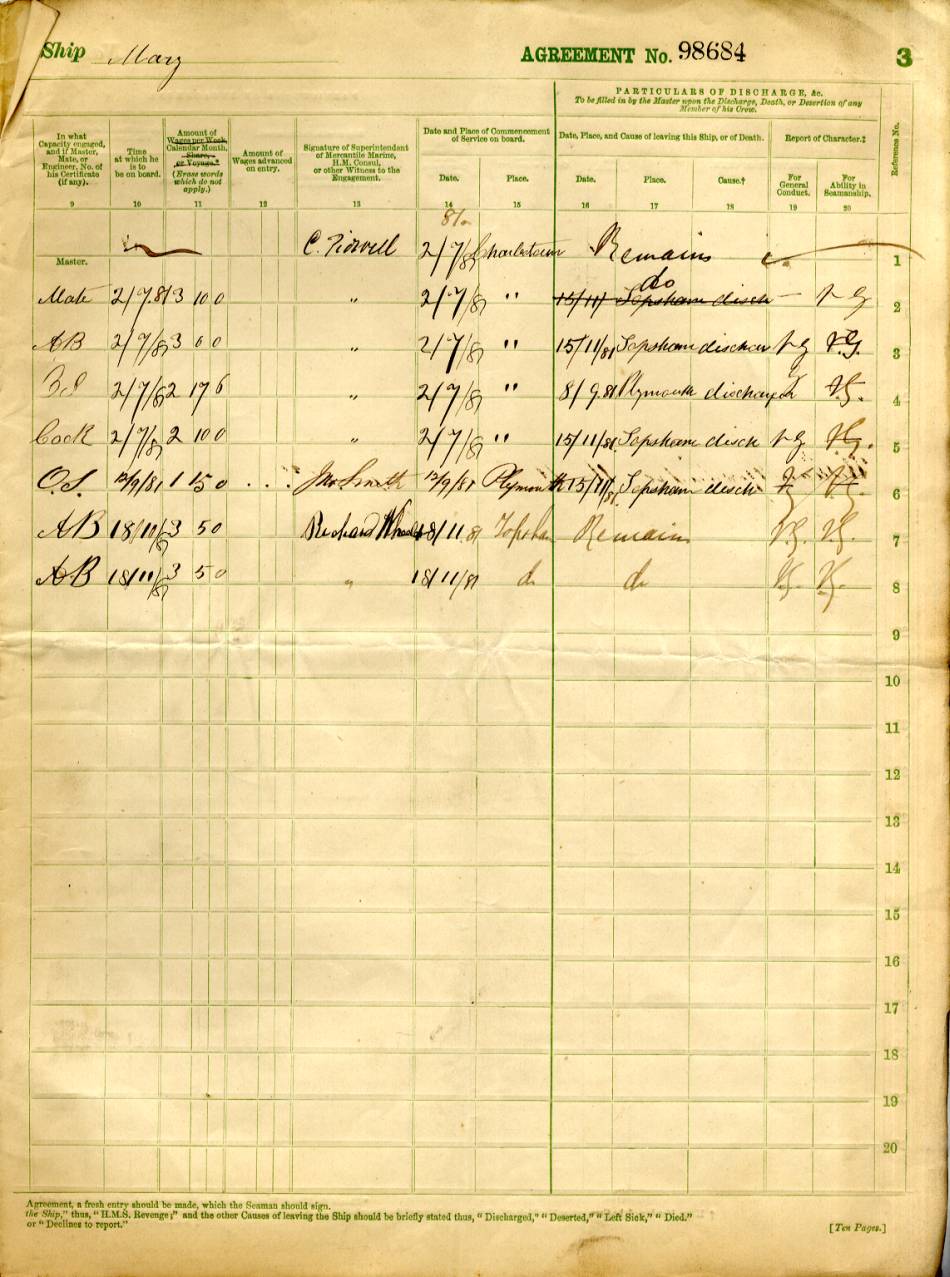 Ship Mary AGREEMENT No. 98684 3
PARTICULARS OF DISCHARGE, &c.
To be filled in by the Master upon the Discharge, Death, or Desertion of any Member of his Crew.
In what Capacity engaged, and if Master, Mate, or Engineer, No. of his Certificate (if any).
Time at which he is to be on board.
Amount of Wages per Week, Calendar Month, Share, or Voyage.* (Erase words which do not apply.)
Amount of Wages advanced on entry.
Signature of Superintendent of Mercantile Marine, H.M. Consul, or other Witness to the Engagement.
Date and Place of Commencement of Service on board.
Date. Place.
Date, Place, and Cause of leaving this Ship, or of Death.
Date. Place. Cause.†
Report of Character.‡
For General Conduct. For Ability in Seamanship.
Reference No.
9 10 11 12 13 14 15 16 17 18 19 20
Master. C. 2/7/81 Charlestown Remains 1
Mate 2/7.81 3 10 0 " 2/7/81 " 15/11/ Topsham disch do — VG 2
AB 2/7/81 3 0 0 " 2/7/81 " 15/11/81 Topsham dischar VG V.G. 3
2/7/81 2 17 6 " 2/7/81 " 8/9.81 Plymouth discharged V.G. 4
Cook 2/7/81 2 10 0 " 2/7/81 " 15/11/81 Topsham disch VG V.G. 5
O.S. 12/9/81 1 15 0 Jno Smith 12/9/81 Plymouth 15/11/81 Topsham disch V.G. V.G. 6
AB 18/10/81 3 5 0 Richard 18/11 81 Topsham Remains V.G. V.G. 7
AB 18/11/81 3 5 0 " 18/11/81 do do V.G. V.G. 8
9
10
11
12
13
14
15
16
17
18
19
20
Agreement, a fresh entry should be made, which the Seaman should sign.
the Ship," thus, "H.M.S. Revenge;" and the other Causes of leaving the Ship should be briefly stated thus, "Discharged," "Deserted," "Left Sick," "Died."
or "Declines to report."
[Ten Pages.]